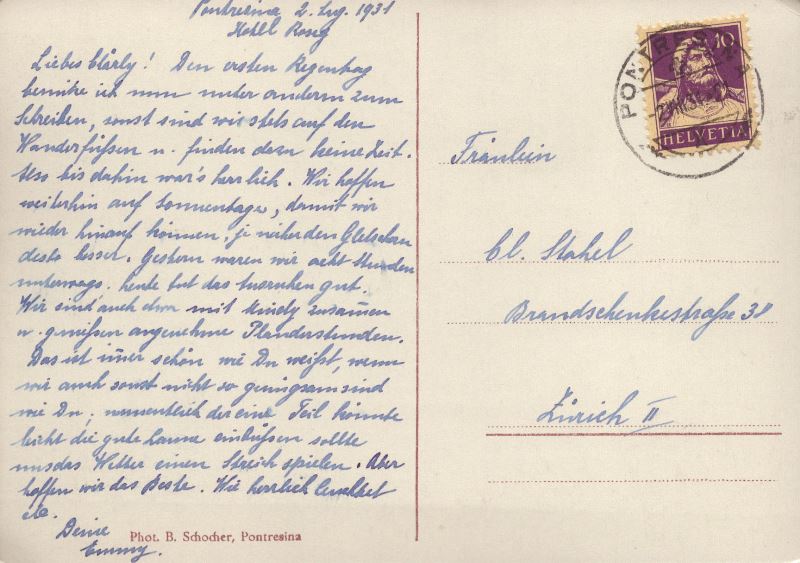 Pontresina 2. Aug. 1931
Hotel Roseg
Liebes Clärly! Den ersten Regentag
benütze ich nun unter anderm zum
Schreiben, sonst sind wir stets auf den
Wanderfüssen u. finden dann keine Zeit.
Also bis dahin war's herrlich. Wir hoffen
weiterhin auf Sonnentage, damit wir
wieder hinauf können, je näher den Gletschern
desto besser. Gestern waren wir acht Stunden
unterwegs. heute tut das Ausruhen gut.
Wir sind auch etwa mit zusammen
u. geniessen angenehme Plauderstunden.
Das ist immer schön wie Du weißt, wenn
wir auch sonst nicht so genügsam sind
wie Du, namentlich der eine Teil könnte
leicht die gute Laune einbüssen sollte
uns das Wetter einen Streich spielen. Aber
hoffen wir das Beste. Wie herrlich
etc.
Deine
Emmy.
Phot. B. Schocher, Pontresina
PONTRES
10
HELVETIA
Fräulein
Cl. Stahel
Brandschenkestraße 38
Zürich II